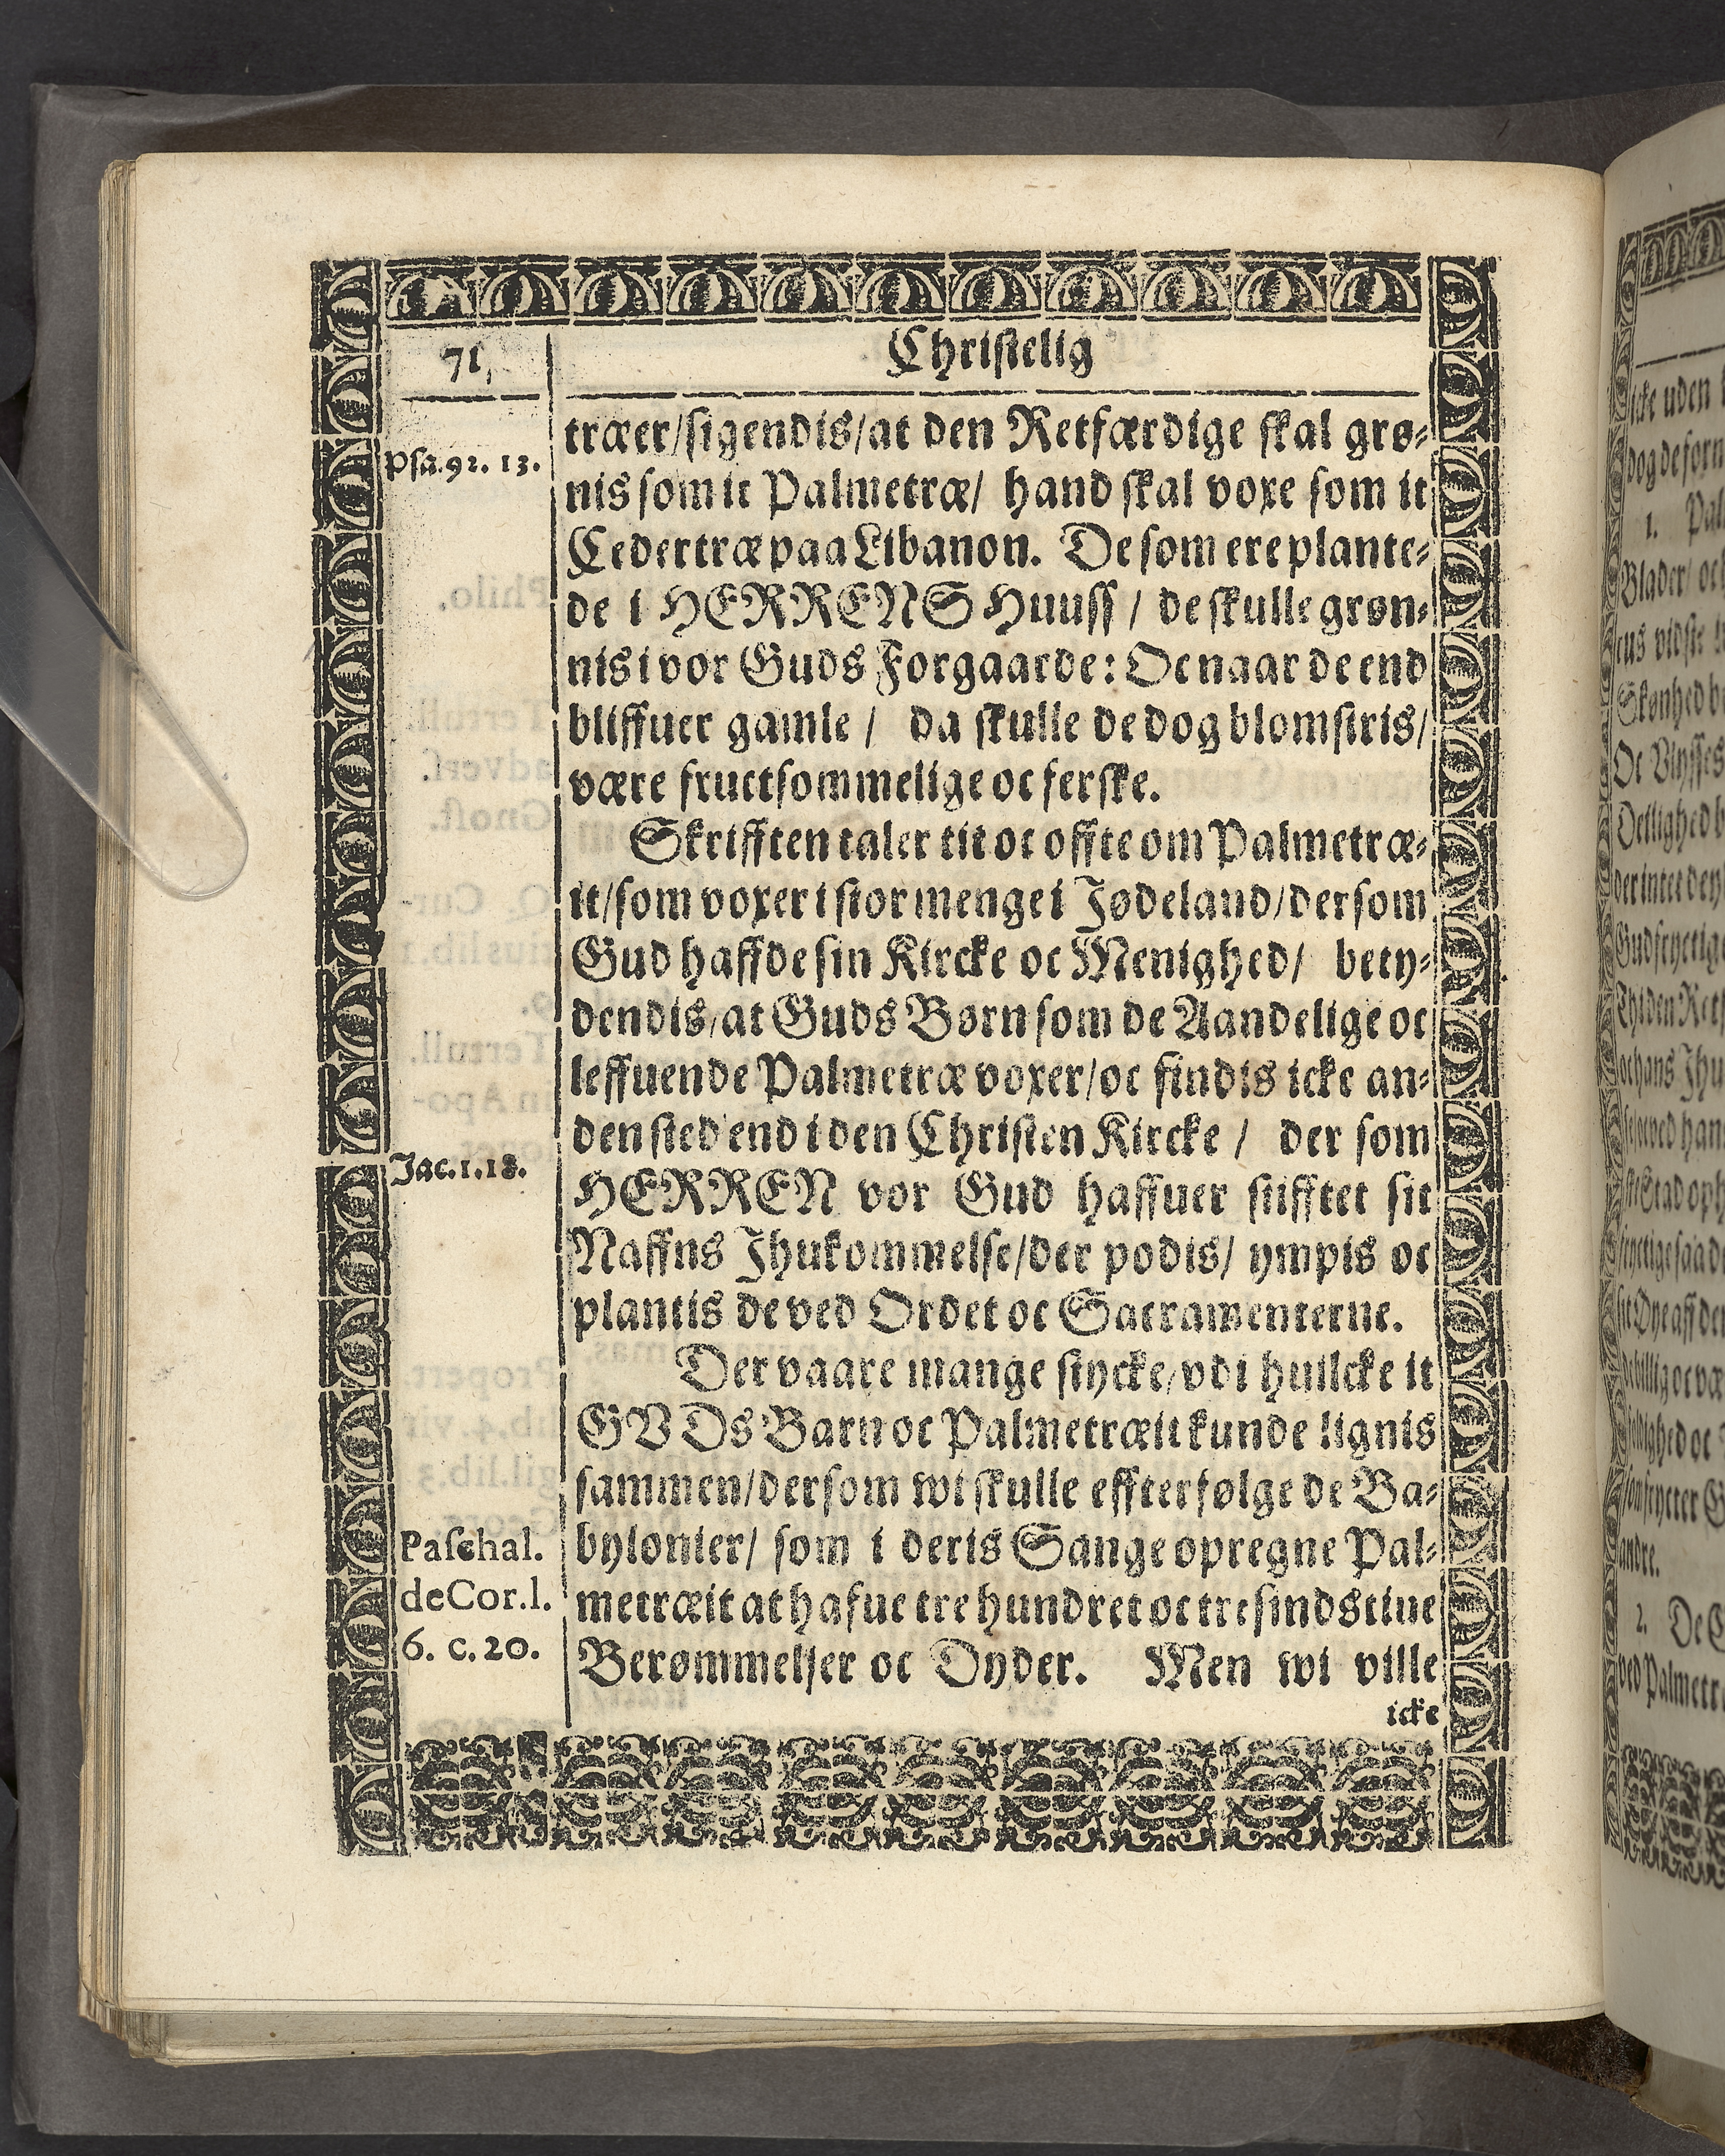 71,
Christelig
Psa. 92. 13.
træer/ sigendis/ at den Retfærdige skal grø-
nis som it Palmetræ/ hand skal voxe som it
Cedertræ paa Libanon. De som ere plante-
de i HERRENS Huuss / de skulle grøn-
nis i vor Guds Forgaarde: Oc naar de end
bliffuer gamle / da skulle de dog blomstris/
være fructsommelige oc ferske.
Skrifften taler tit oc offte om Palmetræ-
it/ som voxer i stor menge i Jødeland/ der som
Gud haffde sin Kircke oc Menighed/ bety-
dendis/ at Guds Børn som de Aandelige oc
leffuende Palmetræ voxer/ oc findis icke an-
den sted end i den Christen Kircke / der som
Jac. 1. 18.
HERREN vor Gud haffuer stifftet sit
Naffns Jhukommelse/ der podis/ ympis oc
plantis de ved Ordet oc Sacramenterne.
Der vaare mange stycke/ vdi huilcke it
GVDs Barn oc Palmetræit kunde lignis
sammen/ dersom wi skulle effterfølge de Ba-
Paschal.
de Cor. l.
6. c. 20.
bylonier/ som i deris Sange opregne Pal-
metræit at hafue tre hundret oc tresindstiue
Berømmelser oc Dyder. Men wi ville
icke
icke uden
dog de forn
1. Pal
Blader/ oc
Skønhed
Oc Vlysses
2. De
ved Palmetr
andre.